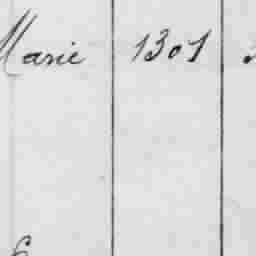 Marie 1301